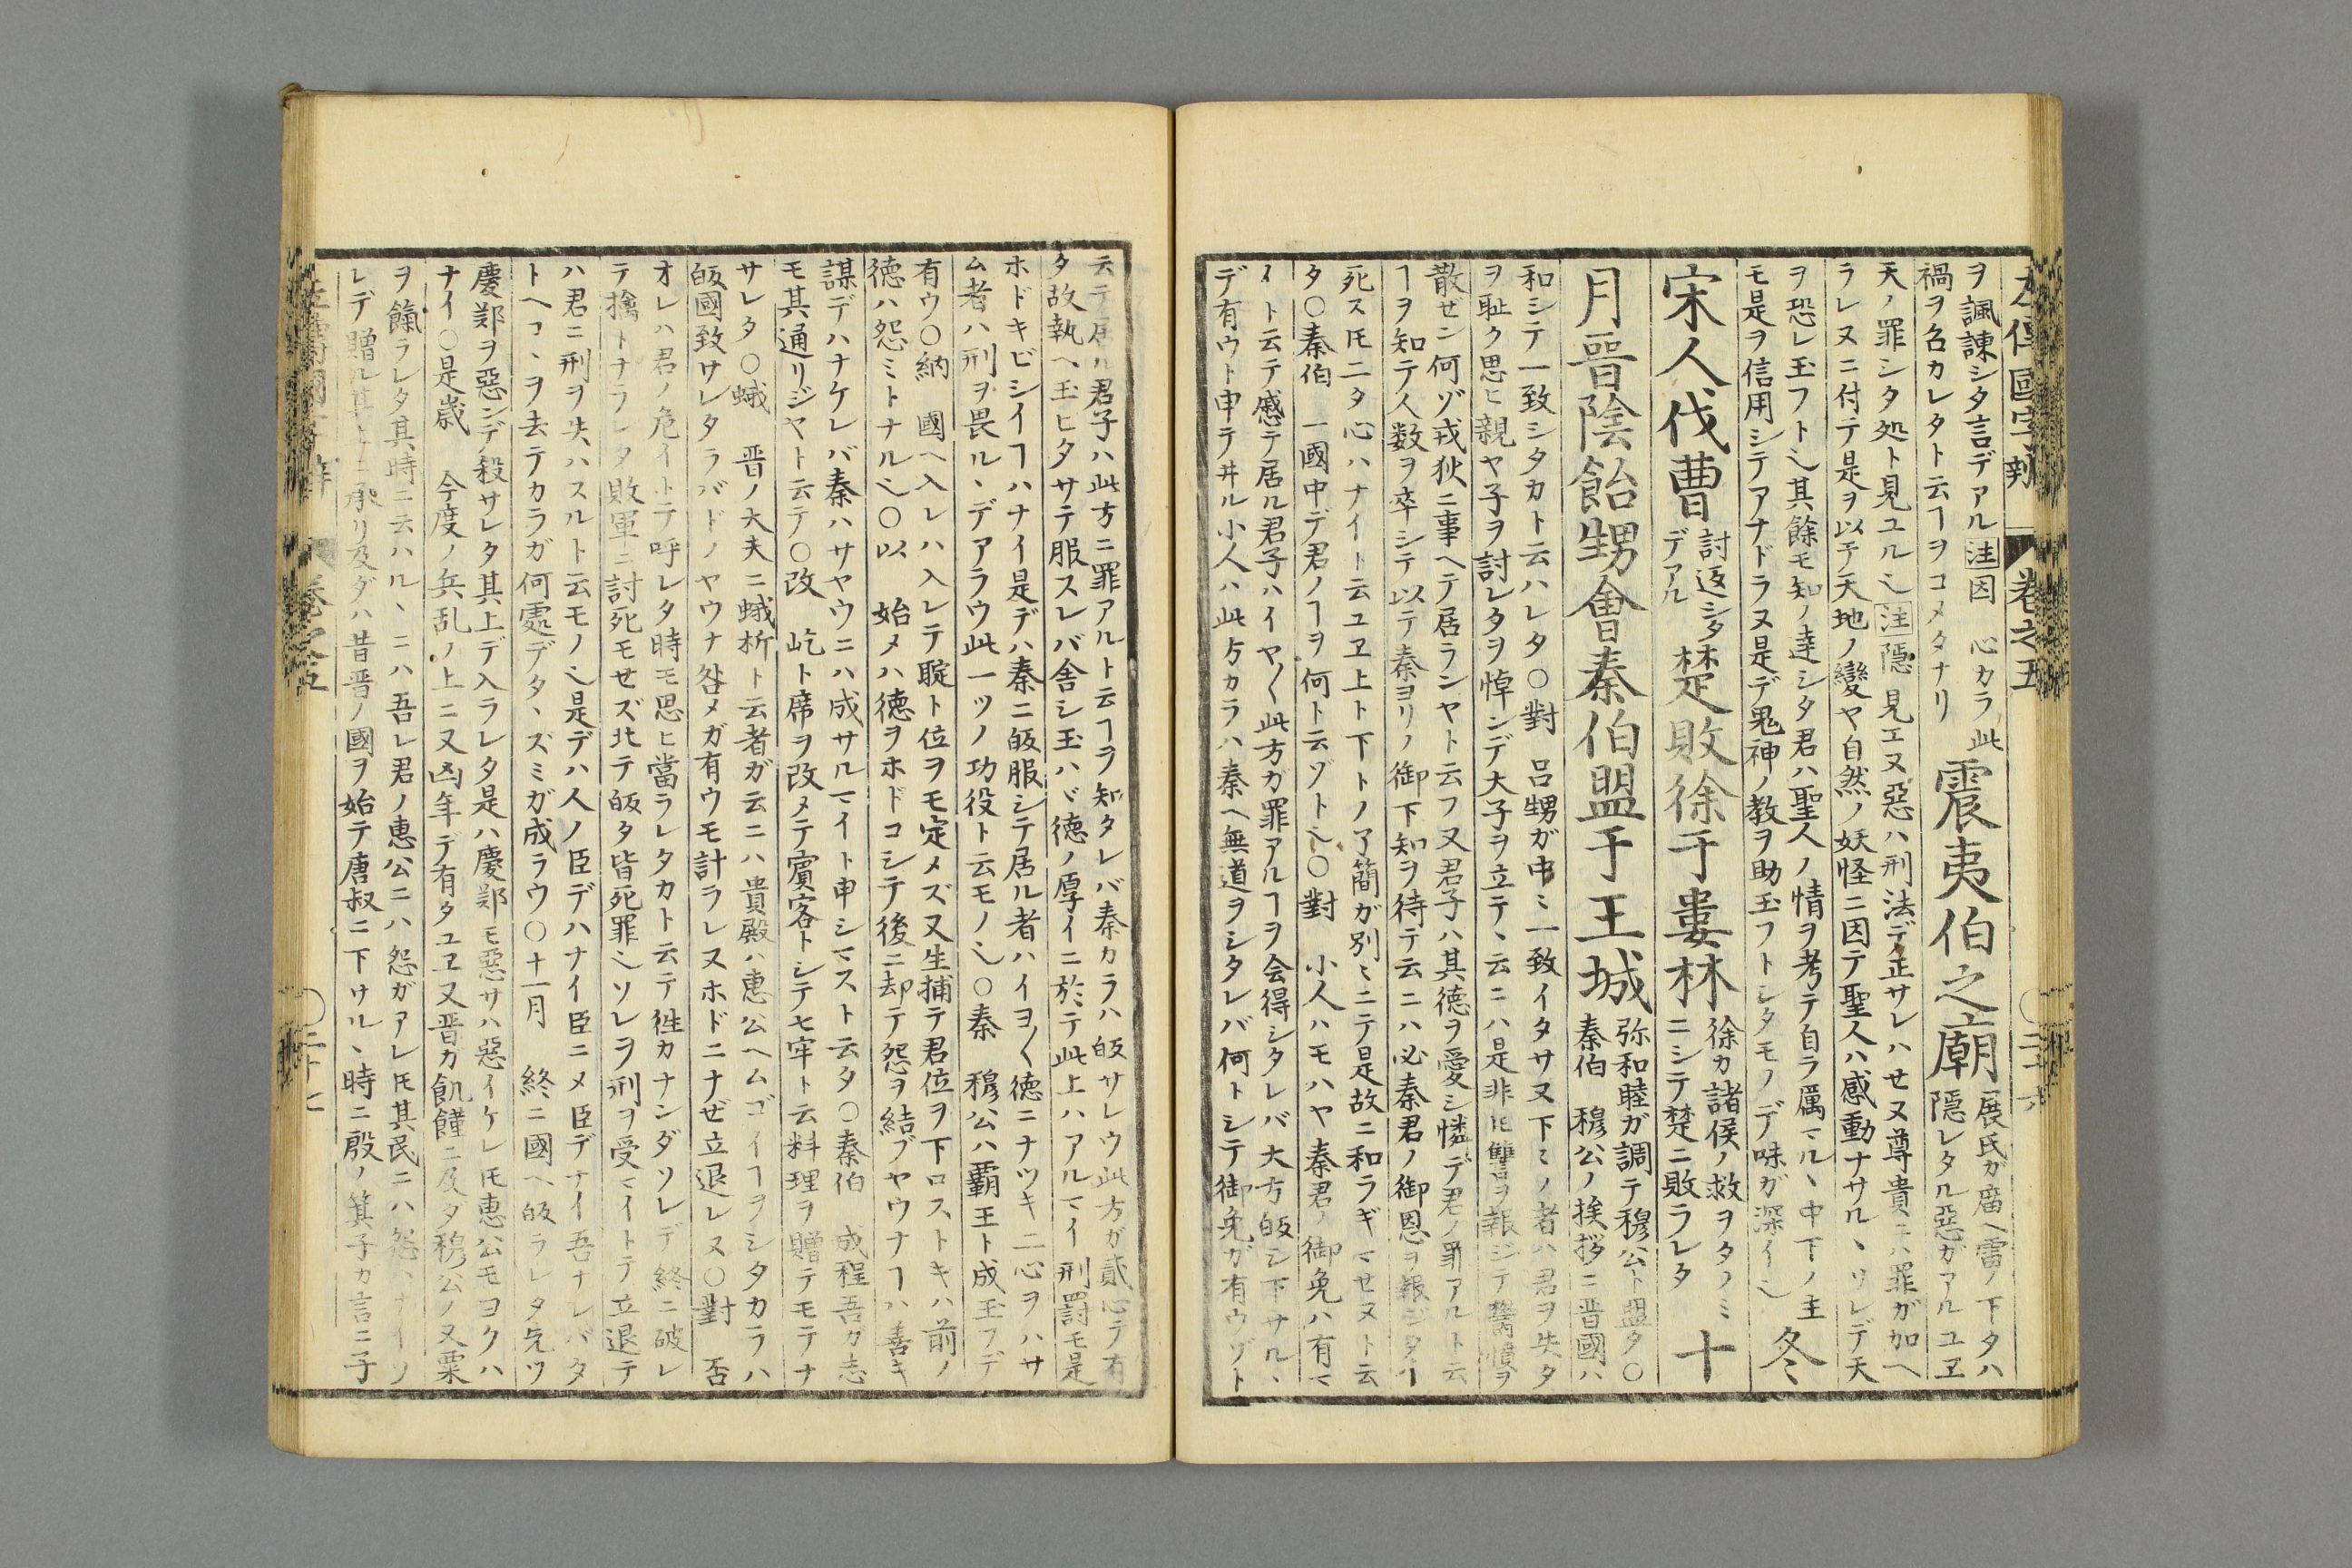 左傳國字辨 卷之五 〇二十六
ヲ諷諌シタ言デアル注因 心カラ此
禍ヲ名カレタト云ヿヲコメタナリ
震夷伯之廟
展氏ガ廟ヘ雷ノ下タハ
隠レタル惡ガアルユヱ
天ノ罪シタ処ト見ユル也注隠 見エヌ惡ハ刑法デ正サレハセヌ尊貴ニハ罪ガ加ヘ
ラレヌニ付テ是ヲ以テ天地ノ變ヤ自然ノ妖怪ニ因テ聖人ハ感動ナサルヽソレデ天
ヲ恐レ玉フト也其餘モ知ノ達シタ君ハ聖人ノ情ヲ考テ自ラ厲マルヽ中下ノ主
モ是ヲ信用シテアナドラヌ是デ鬼神ノ教ヲ助玉フトシタモノデ味ガ深イ也
冬
宋人伐曹
討返シタ
デアル
楚敗徐于婁林
徐カ諸侯ノ救ヲタノミ
ニシテ楚ニ敗ラレタ
十
月晉陰飴甥會秦伯盟于王城
弥和睦ガ調テ穆公ト盟タ〇
秦伯 穆公ノ挨拶ニ晋國ハ
和シテ一致シタカト云ハレタ〇對 呂甥ガ申ニ一致イタサヌ下々ノ者ハ君ヲ失タ
ヲ耻ク思ヒ親ヤ子ヲ討レタヲ悼ンデ大子ヲ立テヽ云ニハ是非トモ讐ヲ報ジテ鬱憤ヲ
散ゼン何ゾ戎狄ニ事ヘテ居ランヤト云フ又君子ハ其徳ヲ愛シ憐デ君ノ罪アルト云
ヿヲ知テ人数ヲ卒シテ以テ秦ヨリノ御下知ヲ待テ云ニハ必秦君ノ御恩ヲ報ジタイ
死ストモ二タ心ハナイト云ユヱ上ト下トノ了簡ガ別々ニテ是故ニ和ラギマセヌト云
タ〇秦伯 一國中デ君ノヿヲ何ト云ゾト也〇對 小人ハモハヤ秦君ノ御免ハ有マ
イト云テ慼テ居ル君子ハイヤ〱此方ガ罪アルヿヲ会得シタレバ大方皈シ下サルヽ
デ有ウト申テ井ル小人ハ此方カラハ秦ヘ無道ヲシタレバ何トシテ御免ガ有ウゾト
云テ居ル君子ハ此方ニ罪アルト云ヿヲ知タレバ秦カラハ皈サレウ此方ガ貳心テ有
タ故執ヘ玉ヒタサテ服スレバ舎シ玉ハヾ徳ノ厚イニ於テ此上ハアルマイ刑罸モ是
ホドキビシイヿハナイ是デハ秦ニ皈服シテ居ル者ハイヨ〱徳ニナツキ二心ヲハサ
ム者ハ刑ヲ畏ルヽデアラウ此一ツノ功役ト云モノ也〇秦 穆公ハ覇王ト成玉フデ
有ウ〇納 國ヘ入レハ入レテ聢ト位ヲモ定メズ又生捕テ君位ヲ下ロストキハ前ノ
徳ハ怨ミトナル也〇以 始メハ徳ヲホドコシテ後ニ却テ怨ヲ結ブヤウナヿハ善キ
謀デハナケレバ秦ハサヤウニハ成サルマイト申シマスト云タ〇秦伯 成程吾カ志
モ其通リジヤト云テ〇改 屹ト席ヲ改メテ賓客トシテ七牢ト云料理ヲ贈テモテナ
サレタ〇蛾 晋ノ大夫ニ蛾析ト云者ガ云ニハ貴殿ハ恵公ヘムゴイヿヲシタカラハ
皈國致サレタラバドノヤウナ咎メガ有ウモ計ラレヌホドニナゼ立退レヌ〇對 否
オレハ君ノ危イトテ呼レタ時モ思ヒ當ラレタカト云テ徃カナンダソレデ終ニ破レ
テ擒トナラレタ敗軍ニ討死モセズ北テ皈タ皆死罪也ソレヲ刑ヲ受マイトテ立退テ
ハ君ニ刑ヲ失ハスルト云モノ也是デハ人ノ臣デハナイ臣ニメ臣デナイ吾ナレバタ
トヘコヽヲ去テカラガ何處デタヽズミガ成ラウ〇十一月 終ニ國ヘ皈ラレタ先ツ
慶鄭ヲ惡ンデ殺サレタ其上デ入ラレタ是ハ慶鄭モ惡サハ惡イケレトモ恵公モヨクハ
ナイ〇是歳 今度ノ兵乱ノ上ニ又凶年デ有タユヱ又晋ガ飢饉ニ及ダ穆公ノ又粟
ヲ餼ラレタ其時ニ云ハルヽニハ吾レ君ノ恵公ニハ怨ガアレトモ其民ニハ怨ハナイソ
レデ贈ル其上ニ承リ及ダハ昔晋ノ國ヲ始テ唐叔ニ下サルヽ時ニ殷ノ箕子カ言ニ子
卷之五 〇二十七